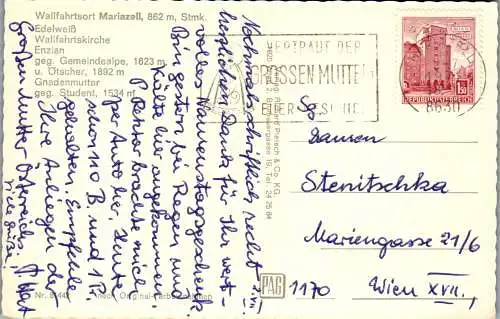 Wallfahrtsort Mariazell, 862 m, Stmk.
Edelweiß
Wallfahrtskirche
Enzian
geg. Gemeindealpe, 1623 m
u. Ötscher, 1892 m
Gnadenmutter
geg. Student, 1534 m
VERTRAUT DER
GROSSEN MUTTER
REPUBLIK ÖSTERREICH
1.50
8630
Nochmals schriftlich recht
herzlichen Dank für Ihr wert-
volles Namenstagsgeschenk
Bin gestern bei Regen und
Kälte hier angekommen.
P. Rektor brachte mich
per Auto hier. Heute
schon 110 B und 1 Pr.
gehalten. Empfehle
Ihre Anliegen der
Großen Mutter Österreichs.
Viele Grüße!
Stenitschka
Mariengasse 21/6
1170 Wien XVII.,
PAG